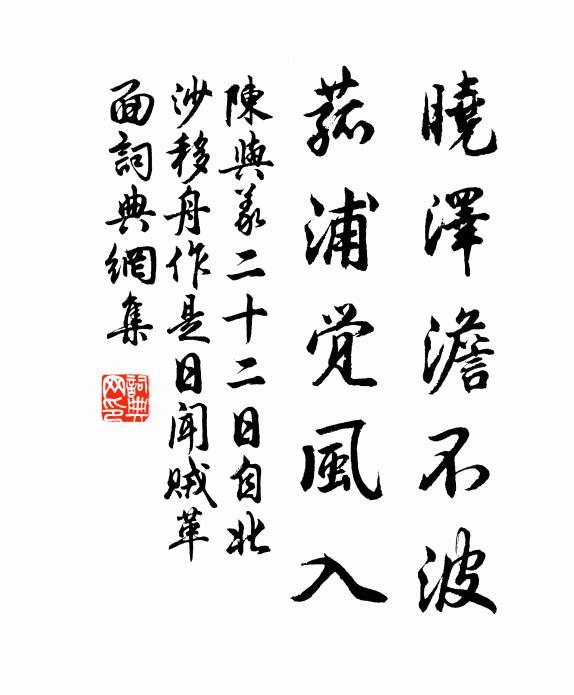 曉澤澹不波
菰浦覚風入
陳與義二十二日自北
沙移舟作是日聞賊革
面詞典網集
詞典
网印